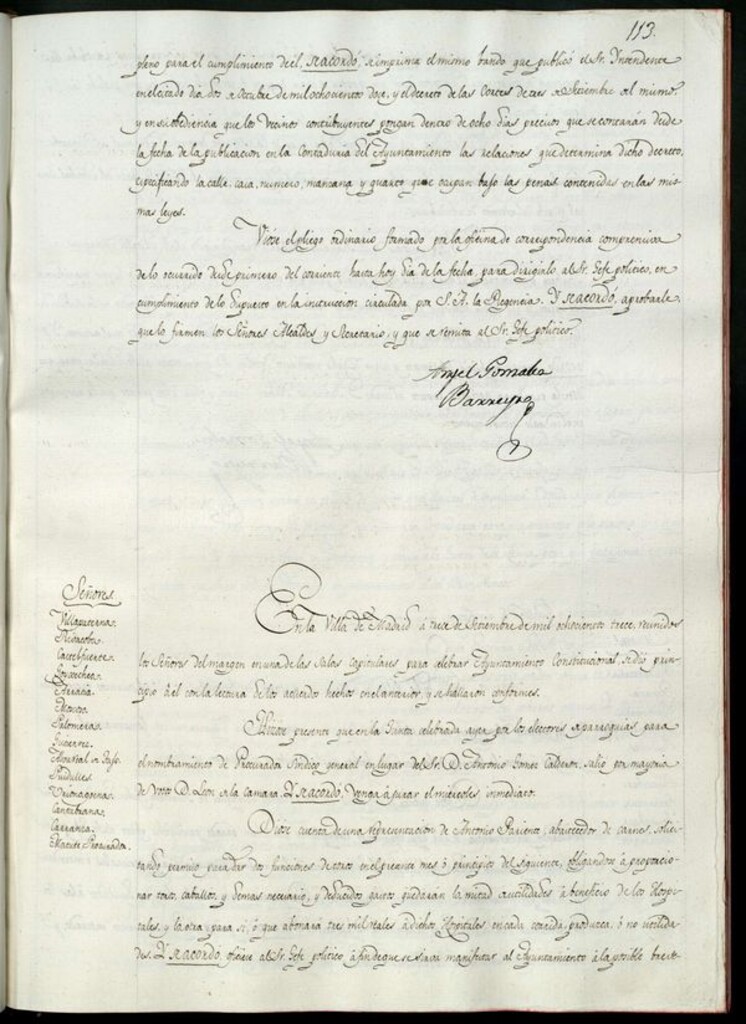 113.
pleno para el cumplimiento de él, se acordó, se imprima el mismo bando que publicó el Sr. Yntendente
en el citado dia dos de Octubre de mil ochocientos doce, y el decreto de las Cortes de tres de Setiembre del mismo,
y en su obediencia que los Vecinos contribuyentes pongan dentro de ocho dias precisos que se contarán desde
la fecha de la publicacion en la Contaduria del Ayuntamiento las relaciones que determina dicho decreto,
especificando la calle, casa, numero, manzana y quarto que ocupan bajo las penas contenidas en las mis-
mas leyes.
Vióse el pliego ordinario formado por la oficina de correspondencia comprensivo
de lo ocurrido desde primero del corriente hasta hoy dia de la fecha, para dirigirlo al Sr. Gefe politico, en
cumplimiento de lo dispuesto en la instruccion circulada por S. A. la Regencia. Y se acordó, aprobarle,
que lo firmen los Señores Alcaldes y Secretario, y que se remita al Sr. Gefe politico.
Angel Gonzalez
Barreyro
Señores.
Villapaterna.
Castelfuerte.
Goyechea.
Arratia.
Palomera.
Gutierrez.
Cantabrana.
Carranza.
Matute Procurador.
En la Villa de Madrid á trece de Setiembre de mil ochociento trece, reunidos
los Señores del margen en una de las Salas capitulares para celebrar Ayuntamiento Constitucional, se dió prin-
cipio á él con la lectura de los acuerdos hechos en el anterior, y se hallaron conformes.
Hizose presente que en la Junta celebrada ayer por los electores de parroquias para
el nombramiento de Procurador Sindico general en lugar del Sr. D. Antonio Gomez Calderon, salió por mayoria
de votos D. Leon de la Camara. Y se acordó, Venga á jurar el miercoles inmediato.
Dióse cuenta de una representacion de Antonio Pariente, abastecedor de carnes, solici-
tando permiso para dar dos funciones de toros en el presente mes ó principios del siguiente, obligandose á proporcio-
nar toros, caballos, y demas necesario, y deducidos gastos quedarán la mitad de utilidades á beneficio de los Hospi-
tales, y la otra para si, ó que abonará tres mil reales á dichos Hospitales en cada corrida, produzca, ó no utilida-
des. Y se acordó, oficiese al Sr. Gefe politico á fin de que se sirva manifestar al Ayuntamiento á la posible breve-